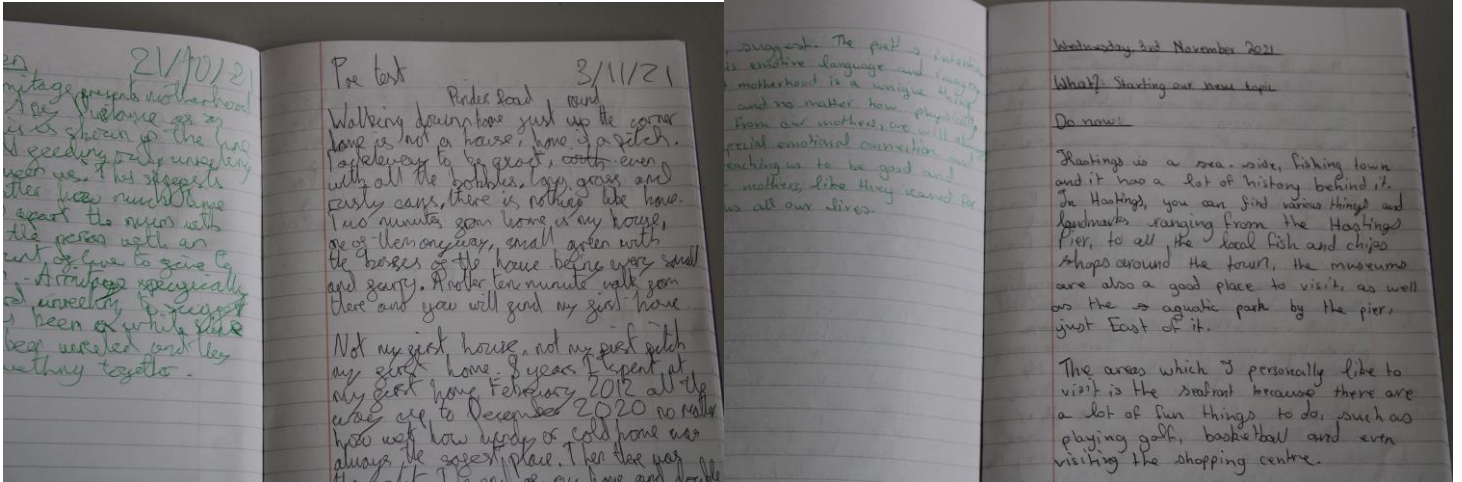 21/10/21
mitage presents motherhood
is shown in the line
feeding out, unreeling
. This suggests
apart the
the person with an
. Armitage specifically
unreeling to suggest
been a while since
been unreeled and they
together.
Pre test 3/11/21
Pinder Road round
Walking down home just up the corner
home is not a house, home is a pitch.
to be exact, even
with all the bobbles, long grass and
rusty cans, there is nothing like home.
Two minutes from home is my house,
small green with
the of the house being very small
and scurry. Another ten minute walk from
there and you will find my first home.
Not my first house, not my first pitch
my first home. 8 years I spent at
my first home February 2012 all the
way up to December 2020 no matter
how wet how windy or cold home was
always the safest place. Then there was
suggest. The poet's intention
is emotive language and imagery
motherhood is a unique thing
and no matter how physically
from our mothers, we will always
special emotional connection and
teaching us to be good and
mothers, like they cared for
us all our lives.
Wednesday 3rd November 2021
What?: Starting our new topic
Do now:
Hastings is a sea-side, fishing town
and it has a lot of history behind it.
In Hastings, you can find various things and
landmarks ranging from the Hastings
Pier, to all the local fish and chips
shops around the town, the museums
are also a good place to visit, as well
as the aquatic park by the pier,
just East of it.
The areas which I personally like to
visit is the seafront because there are
a lot of fun things to do, such as
playing golf, basketball and even
visiting the shopping centre.